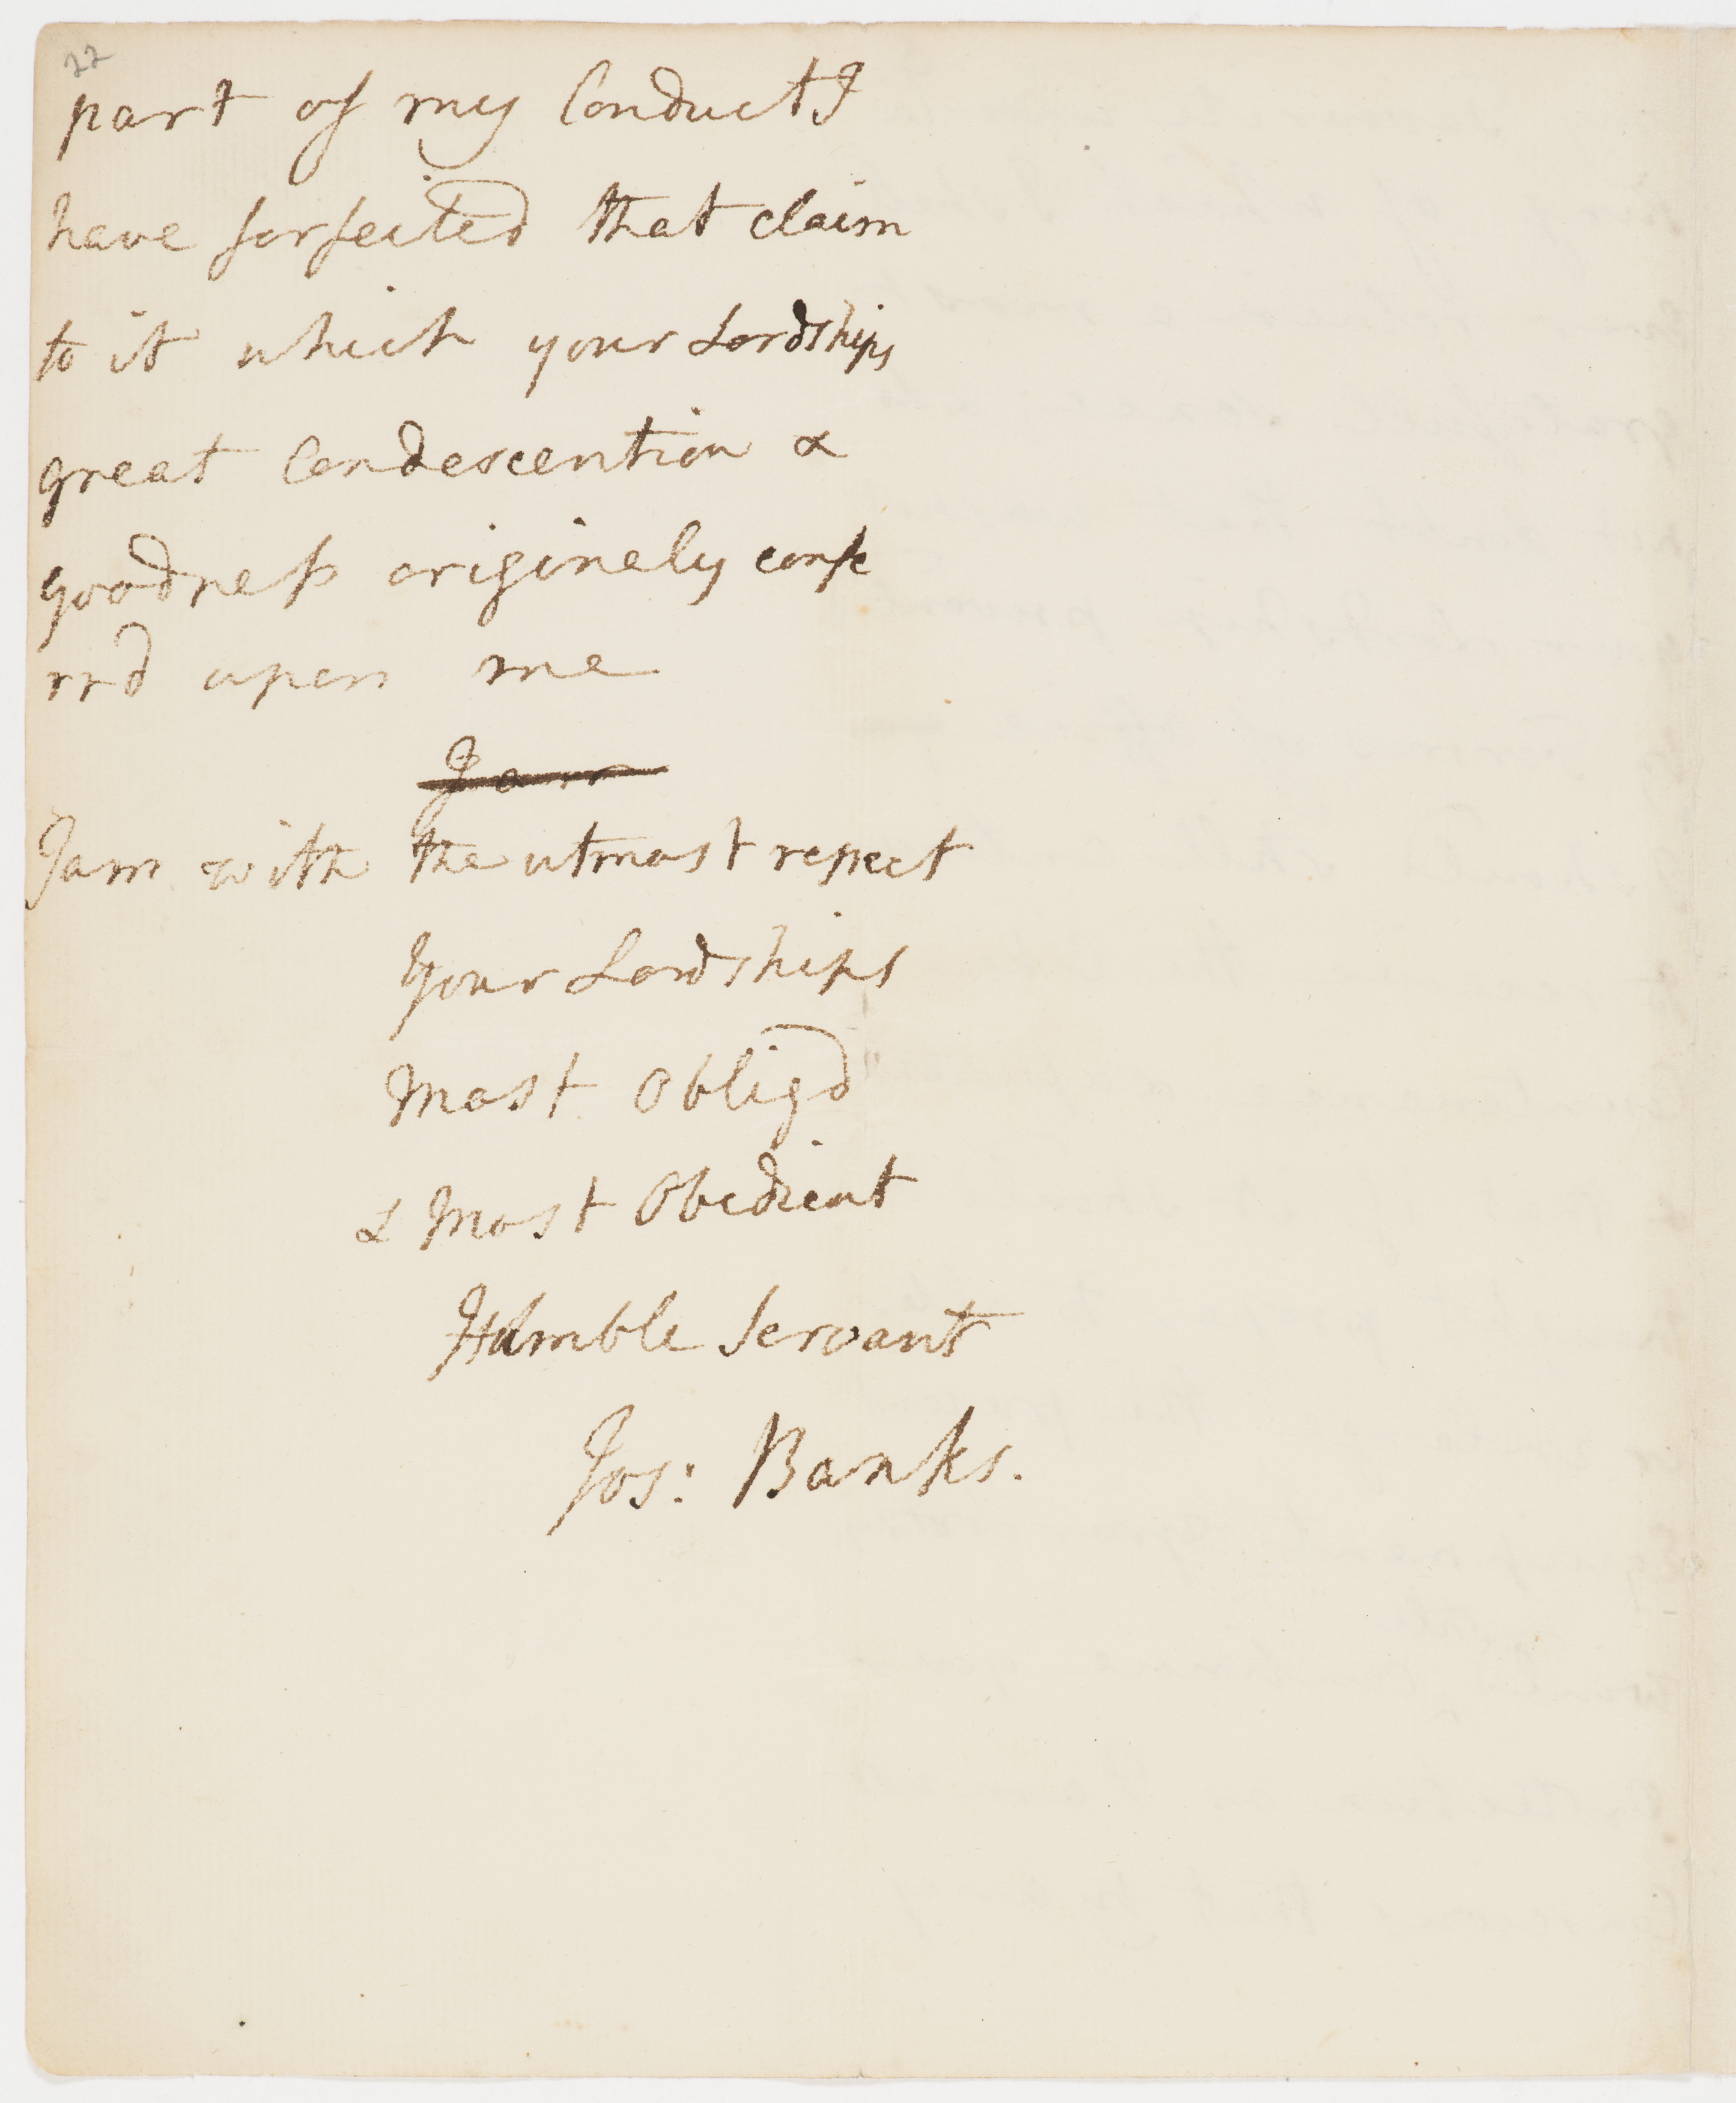 22
part of my Conduct I
have forfeited that claim
to it which your Lordships
great Condescention &
goodness originely confe
rrd upon me
I am
I am with the utmost respect
Your Lordships
Most Obligd
& Most Obedient
Humble Servant
Jos: Banks.